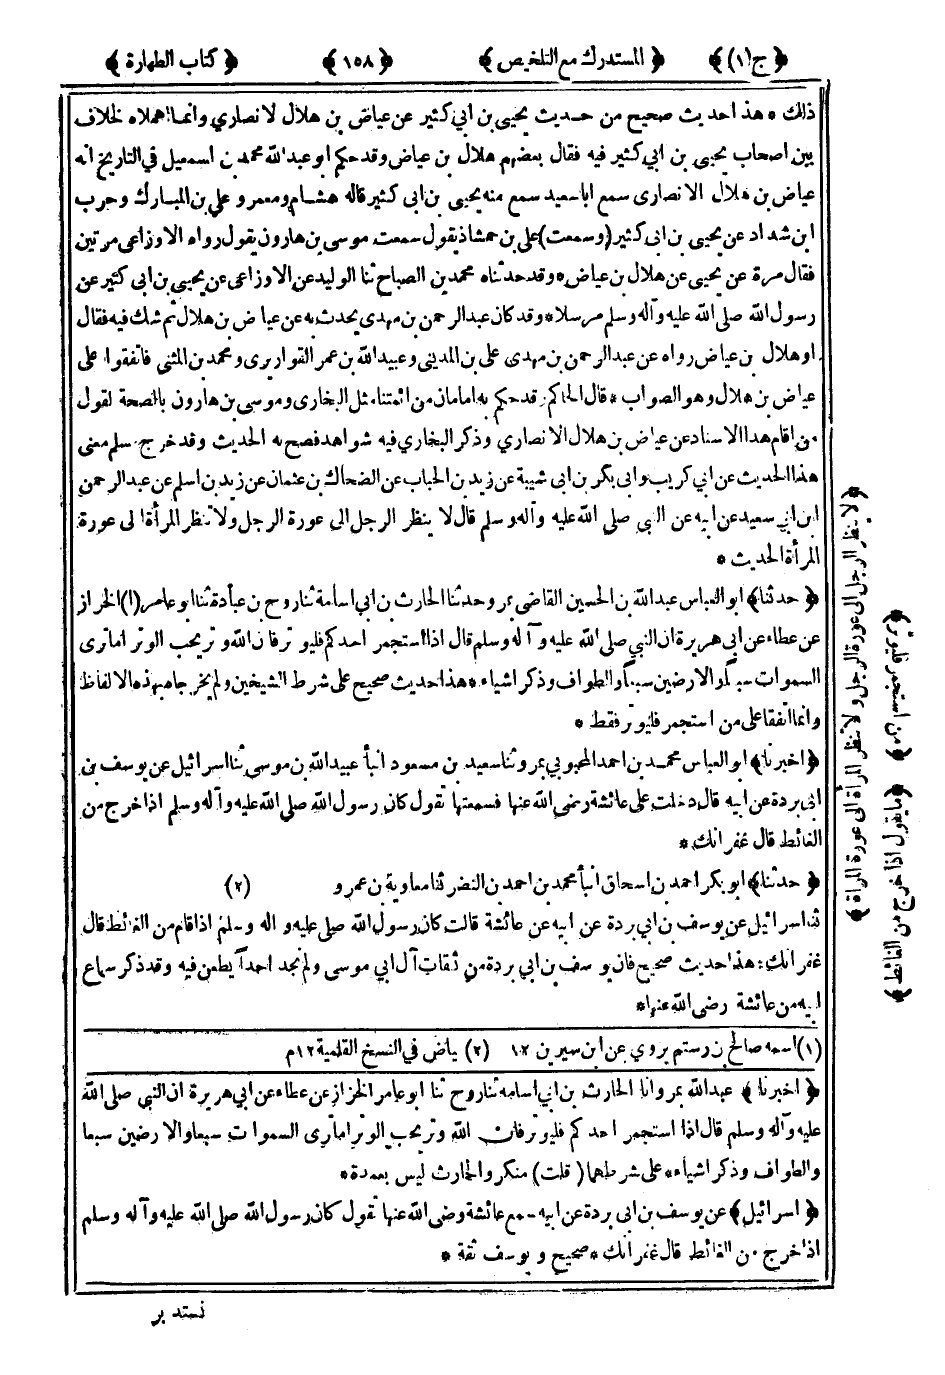 ﴿ ج(١) ﴾ ﴿ المستدرك مع التلخيص ﴾ ﴿ ١٥٨ ﴾ ﴿ كتاب الطهارة ﴾
ذلك * هذا حديث صحيح من حديث يحيى بن ابي كثير عن عياض بن هلال الانصاري وانما اهملاه لخلاف
بين اصحاب يحيى بن ابي كثير فيه فقال بعضهم هلال بن عياض وقد حكم ابو عبد الله محمد بن اسمعيل في التاريخ انه
عياض بن هلال الانصارى سمع ابا سعيد سمع منه يحيى بن ابى كثير قاله هشام ومعمر و على بن المبارك وحرب
ابن شداد عن يحيى بن ابى كثير (وسمعت) على بن حمشاذ يقول سمعت موسى بن هارون يقول رواه الاوزاعى مرتين
فقال مرة عن يحيى عن هلال بن عياض * وقد حدثناه محمد بن الصباح ثنا الوليد عن الاوزاعى عن يحيى بن ابى كثير عن
رسول الله صلى الله عليه وآله وسلم مرسلا * وقد كان عبد الرحمن بن مهدى يحدث به عن عياض بن هلال ثم شك فيه فقال
او هلال بن عياض رواه عن عبد الرحمن بن مهدى على بن المديني وعبيد الله بن عمر القواريرى ومحمد بن المثنى فاتفقوا على
عياض بن هلال وهو الصواب * قال الحاكم قد حكم به امامان من ائمتنا مثل البخارى وموسى بن هارون بالصحة لقول
من اقام هذا الاسناد عن عياض بن هلال الانصاري وذكر البخاري فيه شواهد فصح به الحديث وقد خرج مسلم معنى
هذا الحديث عن ابي كريب وابى بكر بن ابى شيبة عن زيد بن الحباب عن الضحاك بن عثمان عن زيد بن اسلم عن عبد الرحمن
ابن ابي سعيد عن ابيه عن النبي صلى الله عليه وآله وسلم قال لا ينظر الرجل الى عورة الرجل ولا تنظر المرأة الى عورة
المرأة الحديث *
﴿ حدثنا ﴾ ابو العباس عبد الله بن الحسين القاضى بمرو حدثنا الحارث بن ابي اسامة ثنا روح بن عبادة ثنا ابو عامر (١) الخراز
عن عطاء عن ابى هريرة ان النبي صلى الله عليه وآله وسلم قال اذا استجمر احدكم فليوتر فان الله وتر يحب الوتر اما ترى
السموات سبعا والارضين سبعا والطواف وذكر اشياء * هذا حديث صحيح على شرط الشيخين ولم يخرجاه بهذه الالفاظ
وانما اتفقا على من استجمر فليوتر فقط *
﴿ اخبرنا ﴾ ابو العباس محمد بن احمد المحبوبي بمرو ثنا سعيد بن مسعود انبأ عبيد الله بن موسى ثنا اسرائيل عن يوسف بن
ابى بردة عن ابيه قال دخلت على عائشة رضى الله عنها فسمعتها تقول كان رسول الله صلى الله عليه وآله وسلم اذا خرج من
الغائط قال غفرانك *
﴿ حدثنا ﴾ ابو بكر احمد بن اسحاق انبأ محمد بن احمد بن النضر ثنا معاوية بن عمرو (٢)
ثنا اسرائيل عن يوسف بن ابي بردة عن ابيه عن عائشة قالت كان رسول الله صلى عليه و اله وسلم اذا قام من الغائط قال
غفرانك * هذا حديث صحيح فان يوسف بن ابي بردة من ثقات آل ابي موسى ولم نجد احداً يطعن فيه وقد ذكر سماع
ابيه من عائشة رضى الله عنها *
(١) اسمه صالح بن رستم يروي عن ابن سيرين ١٢ (٢) بياض في النسخ القلمية ١٢ م
﴿ اخبرنا ﴾ عبد الله بمرو انا الحارث بن ابي اسامه ثنا روح ثنا ابو عامر الخزاز عن عطاء عن ابي هريرة ان النبي صلى الله
عليه وآله وسلم قال اذا استجمر احدكم فليوتر فان الله وتر يحب الوتر اما ترى السموات سبعا والارضين سبعا
والطواف وذكر اشياء * على شرطهما ( قلت) منكر والحارث ليس بعمدة *
﴿ اسرائيل ﴾ عن يوسف بن ابى بردة عن ابيه سمع عائشة رضى الله عنها تقول كان رسول الله صلى الله عليه وآله وسلم
اذا خرج من الغائط قال غفرانك * صحيح و يوسف ثقة *
﴿ لا ينظر الرجل الى عورة الرجل ولا تنظر المرأة الى عورة المرأة ﴾
﴿ من استجمر فليوتر ﴾
﴿ ما يقول اذا خرج من الغائط ﴾